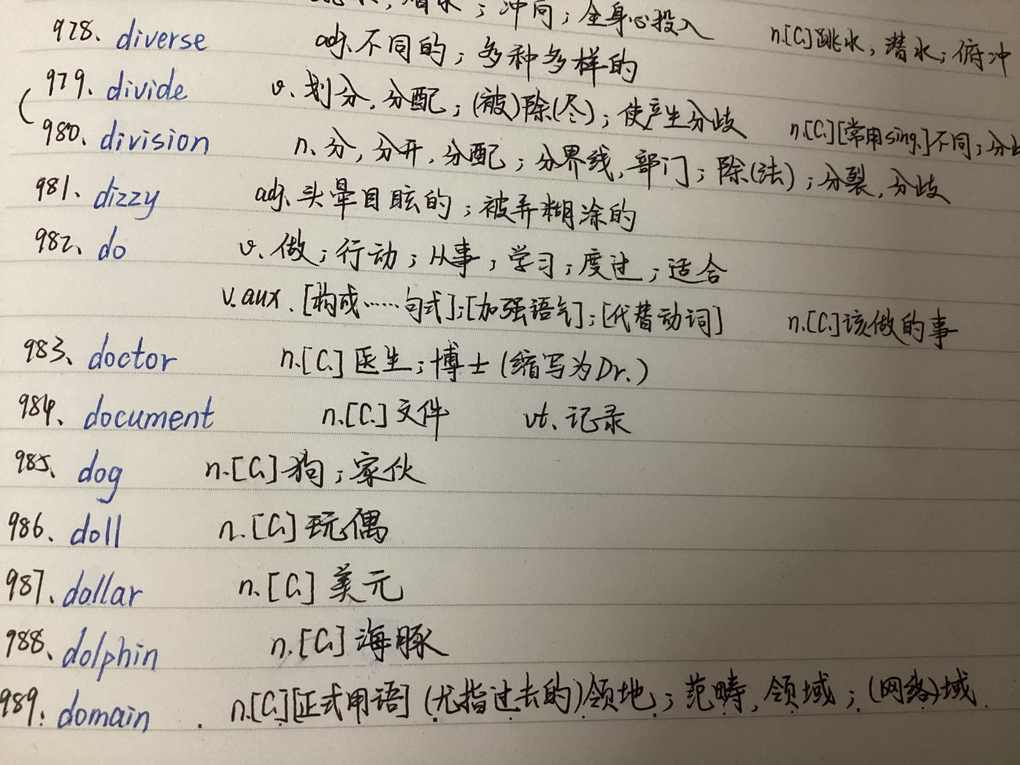 潜水；冲向；全身心投入 n.[C.]跳水，潜水；俯冲
928. diverse adj.不同的；多种多样的
979. divide v.划分，分配；(被)除(尽)；使产生分歧 n.[C.][常用sing.]不同；分歧
980. division n.分，分开，分配；分界线，部门；除(法)；分裂，分歧
981. dizzy adj.头晕目眩的；被弄糊涂的
982. do v.做；行动；从事；学习；度过；适合
v.aux.[构成……句式]；[加强语气]；[代替动词] n.[C.]该做的事
983. doctor n.[C.]医生；博士(缩写为Dr.)
984. document n.[C.]文件 vt.记录
985. dog n.[C.]狗；家伙
986. doll n.[C.]玩偶
987. dollar n.[C.]美元
988. dolphin n.[C.]海豚
989. domain n.[C.][正式用语](尤指过去的)领地；范畴，领域；(网络)域